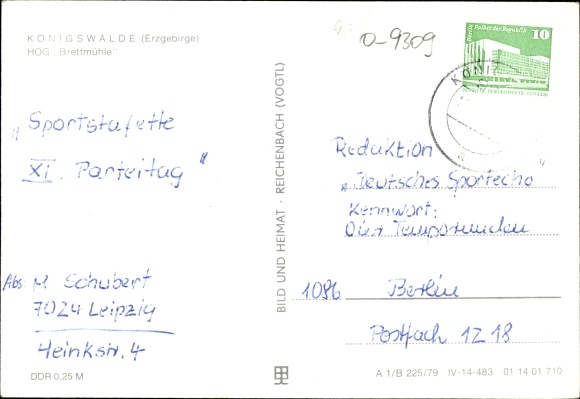 KÖNIGSWALDE (Erzgebirge)
HOG „Brettmühle"
„Sportstafette
XI. Parteitag"
Abs: M. Schubert
7024 Leipzig
Heinkstr. 4
DDR 0,25 M
BILD UND HEIMAT · REICHENBACH (VOGTL)
0-9309
Berlin Palast der Republik 10
DEUTSCHE DEMOKRATISCHE REPUBLIK
KÖNIG
Redaktion
„Deutsches Sportecho"
Kennwort:
Quiz Temposrunden
1086 Berlin
Postfach 1218
A 1/B 225/79 IV-14-483 01 14 01 710